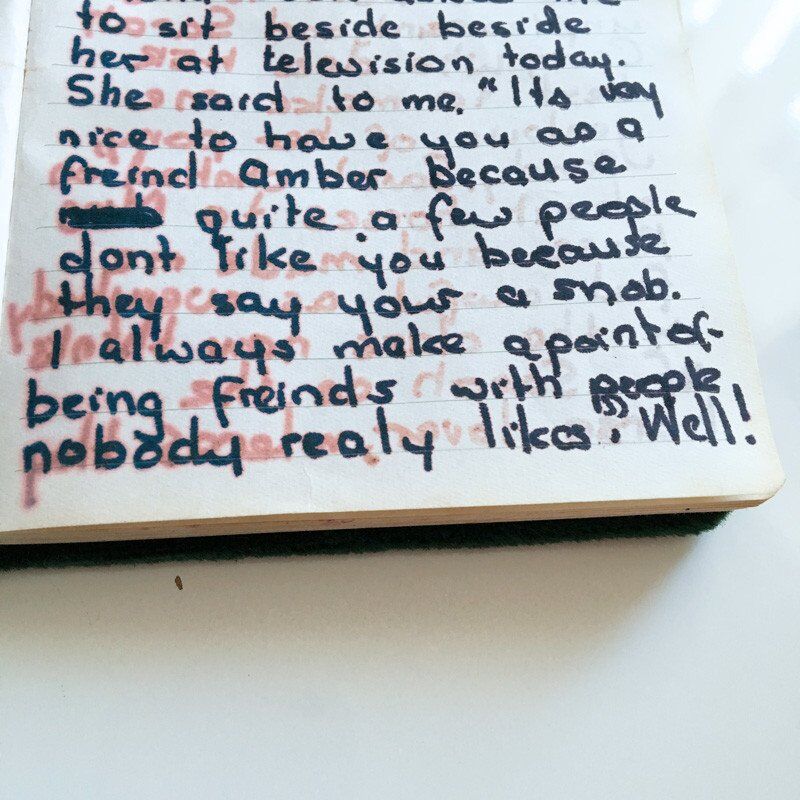 to sit beside beside
her at television today.
She said to me. "Its very
nice to have you as a
freind Amber because
quite a few people
dont like you because
they say your a snob.
I always make a point of
being freinds with people
nobody realy likes". Well!